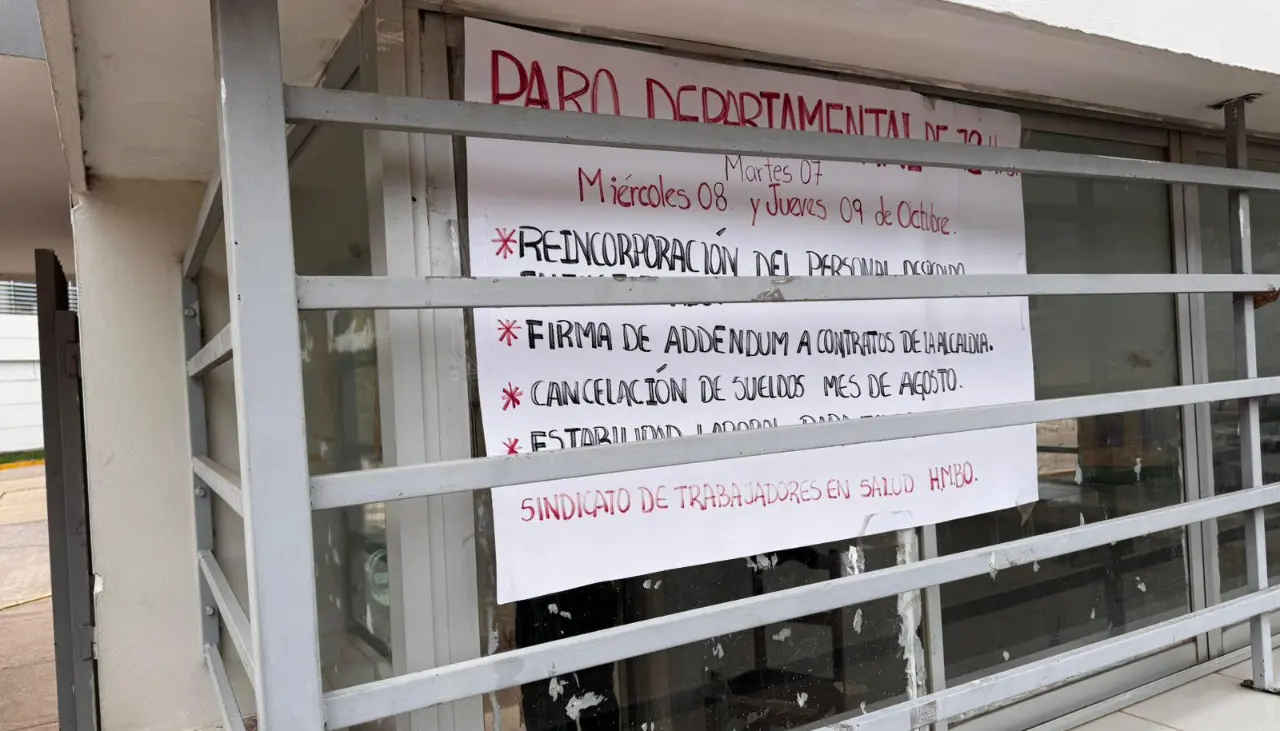 PARO DEPARTAMENTAL DE 72 Hrs.
Martes 07
Miércoles 08 y Jueves 09 de Octubre.
*REINCORPORACIÓN DEL PERSONAL
* FIRMA DE ADDENDUM A CONTRATOS DE LA ALCALDIA.
* CANCELACIÓN DE SUELDOS MES DE AGOSTO.
* ESTABILIDAD LABORAL PARA
SINDICATO DE TRABAJADORES EN SALUD H.M.B.O.